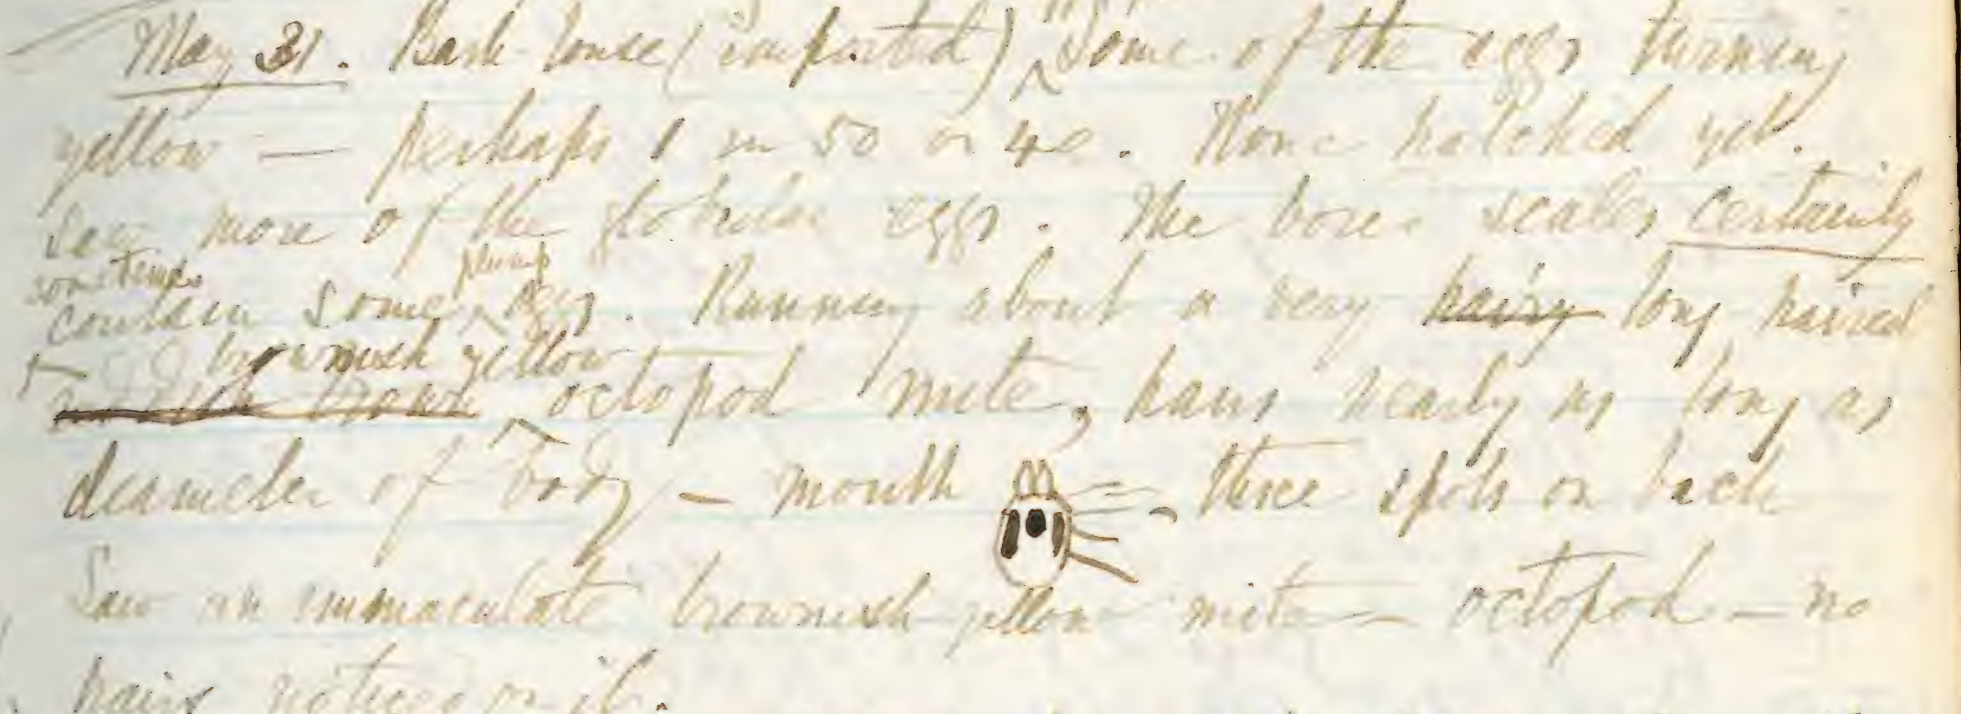 May 31. Bark-louse (imported) ^ Some of the eggs turning
yellow — perhaps 1 in 50 or 40. None hatched yet.
Saw more of the globular eggs. The bored scales certainly
sometimes plump
contain some ^ eggs. Running about a very hairy long haired
brownish yellow
octopod mite, hairs nearly as long as
diameter of body — mouth three spots on back
Saw an immaculate brownish-yellow mite — octopod — no
hairs noticed on it.